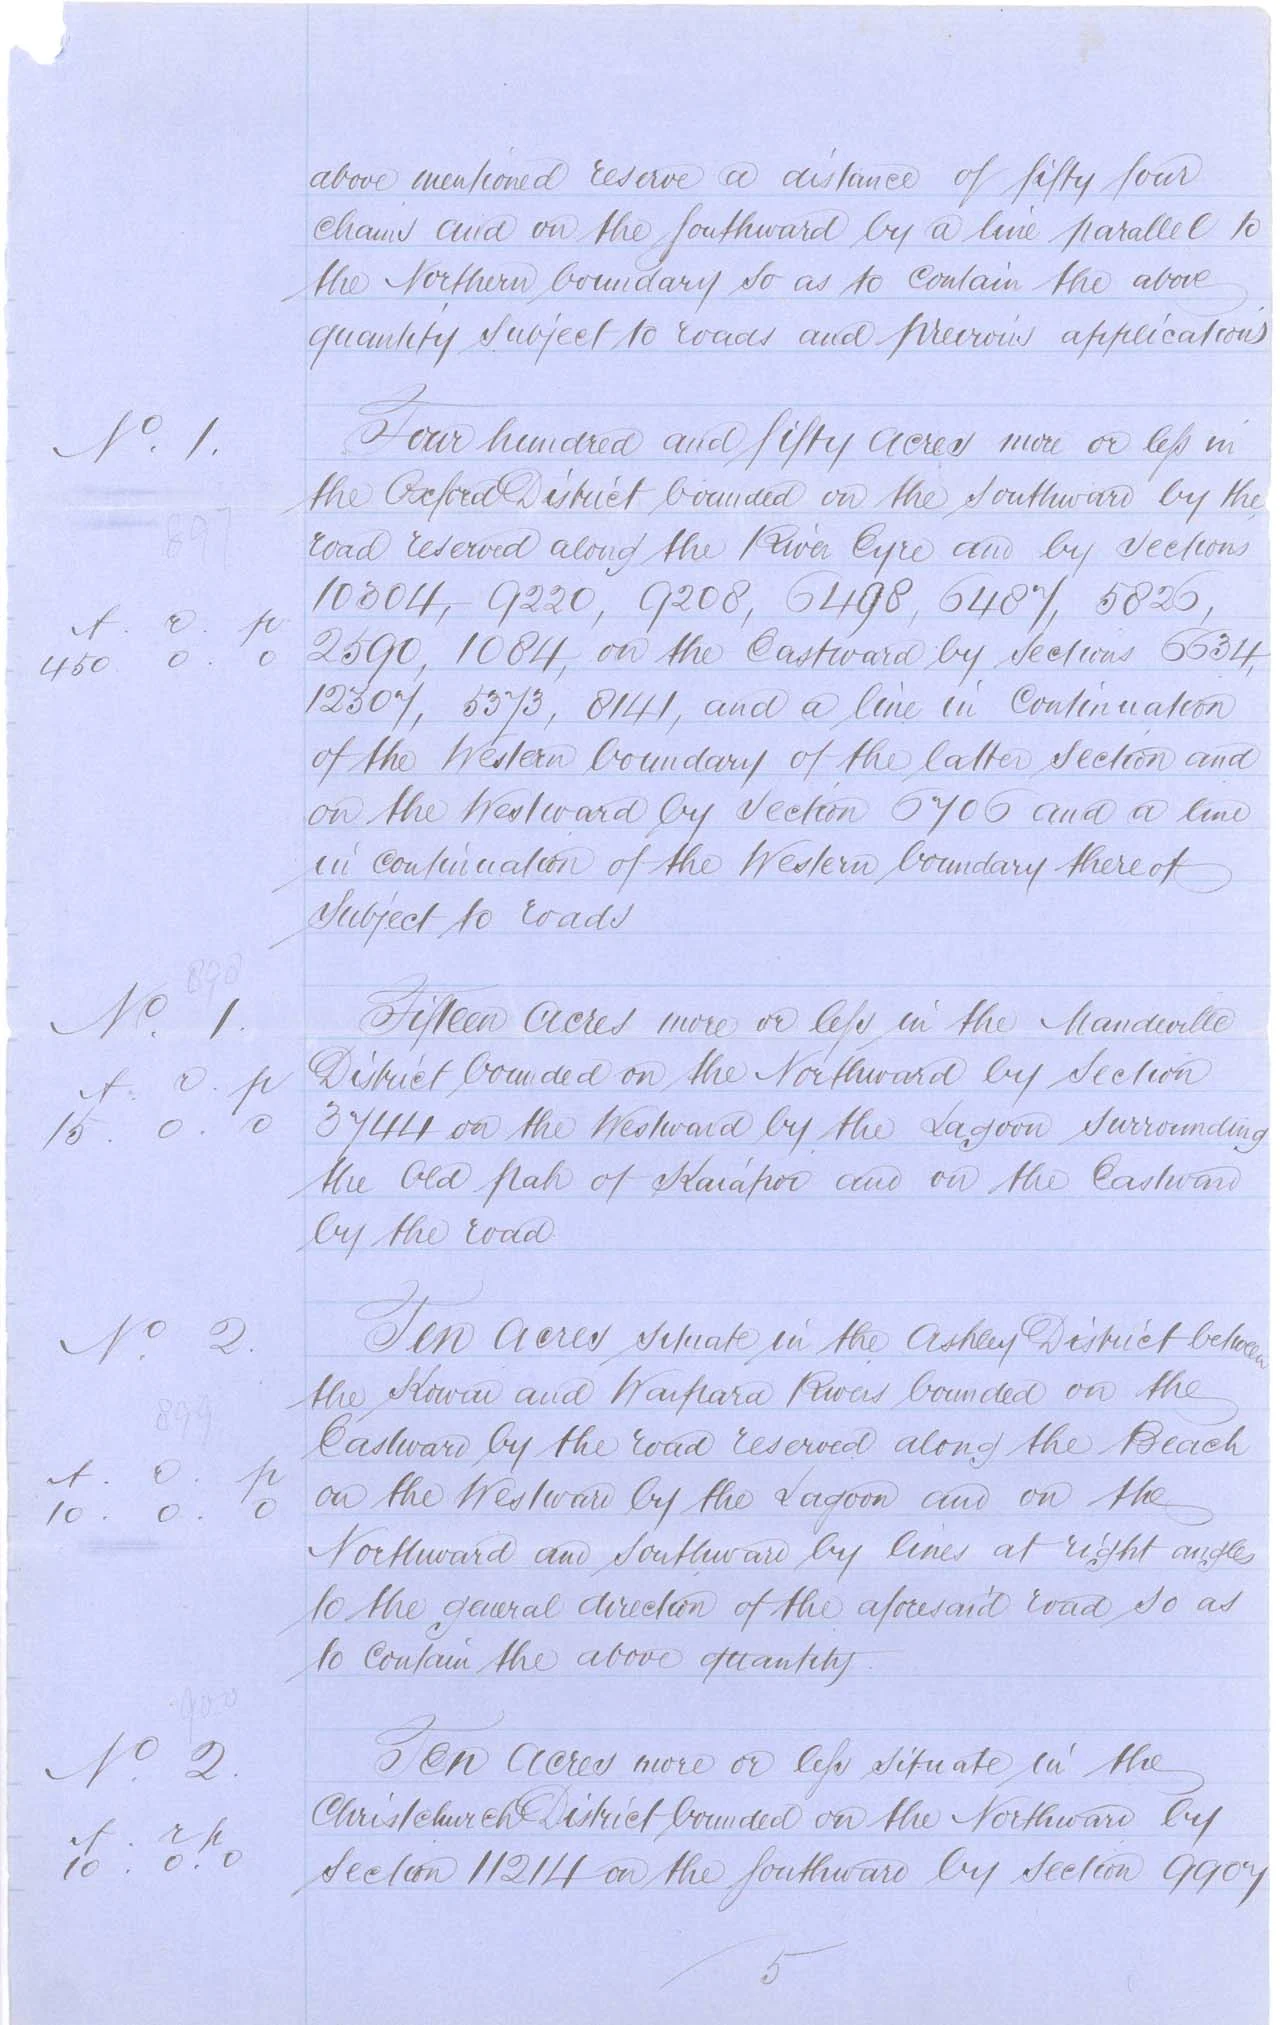 above mentioned reserve a distance of fifty four
chains and on the Southward by a line parallel to
the Northern boundary so as to contain the above
quantity subject to roads and previous applications
No. 1.
Four hundred and fifty acres more or less in
the Oxford District bounded on the Southward by the
897
road reserved along the River Eyre and by sections
10304, 9220, 9208, 6498, 6487, 5826,
A. r. p
450 0. 0
2590, 1084, on the Eastward by sections 6634,
12307, 5373, 8141, and a line in continuation
of the Western boundary of the latter section and
on the Westward by section 6706 and a line
in continuation of the Western boundary thereof
Subject to roads
898
No. 1.
Fifteen acres more or less in the Mandeville
A. r. p
District bounded on the Northward by section
15. 0. 0
3744 on the Westward by the Lagoon surrounding
the Old pah of Kaiapoi and on the Eastward
by the road
No. 2.
Ten acres situate in the Ashley District between
the Kowai and Waipara Rivers bounded on the
899
Eastward by the road reserved along the Beach
A. r. p
10. 0. 0
on the Westward by the Lagoon and on the
Northward and Southward by lines at right angles
to the general direction of the aforesaid road so as
to contain the above quantity.
900
No. 2.
Ten acres more or less situate in the
Christchurch District bounded on the Northward by
A. r p
10. 0. 0
Section 11214 on the Southward by section 9907
5